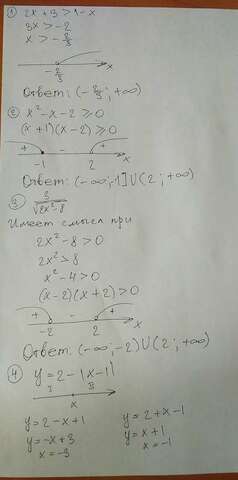 ① 2x + 3 > 1 - x
3x > -2
x > -2/3
-2/3 x
Ответ: (-2/3; +∞)
② x² - x - 2 ≥ 0
(x+1)(x-2) ≥ 0
+ - +
-1 2 x
Ответ: (-∞; -1] U (2; +∞)
③ 3/√(2x²-8)
Имеет смысл при
2x² - 8 > 0
2x² > 8
x² - 4 > 0
(x-2)(x+2) > 0
+ - +
-2 2 x
Ответ: (-∞; -2) U (2; +∞)
④ y = 2 - |x-1|
x
y = 2 - x + 1 y = 2 + x - 1
y = -x + 3 y = x + 1
x = -3 x = -1